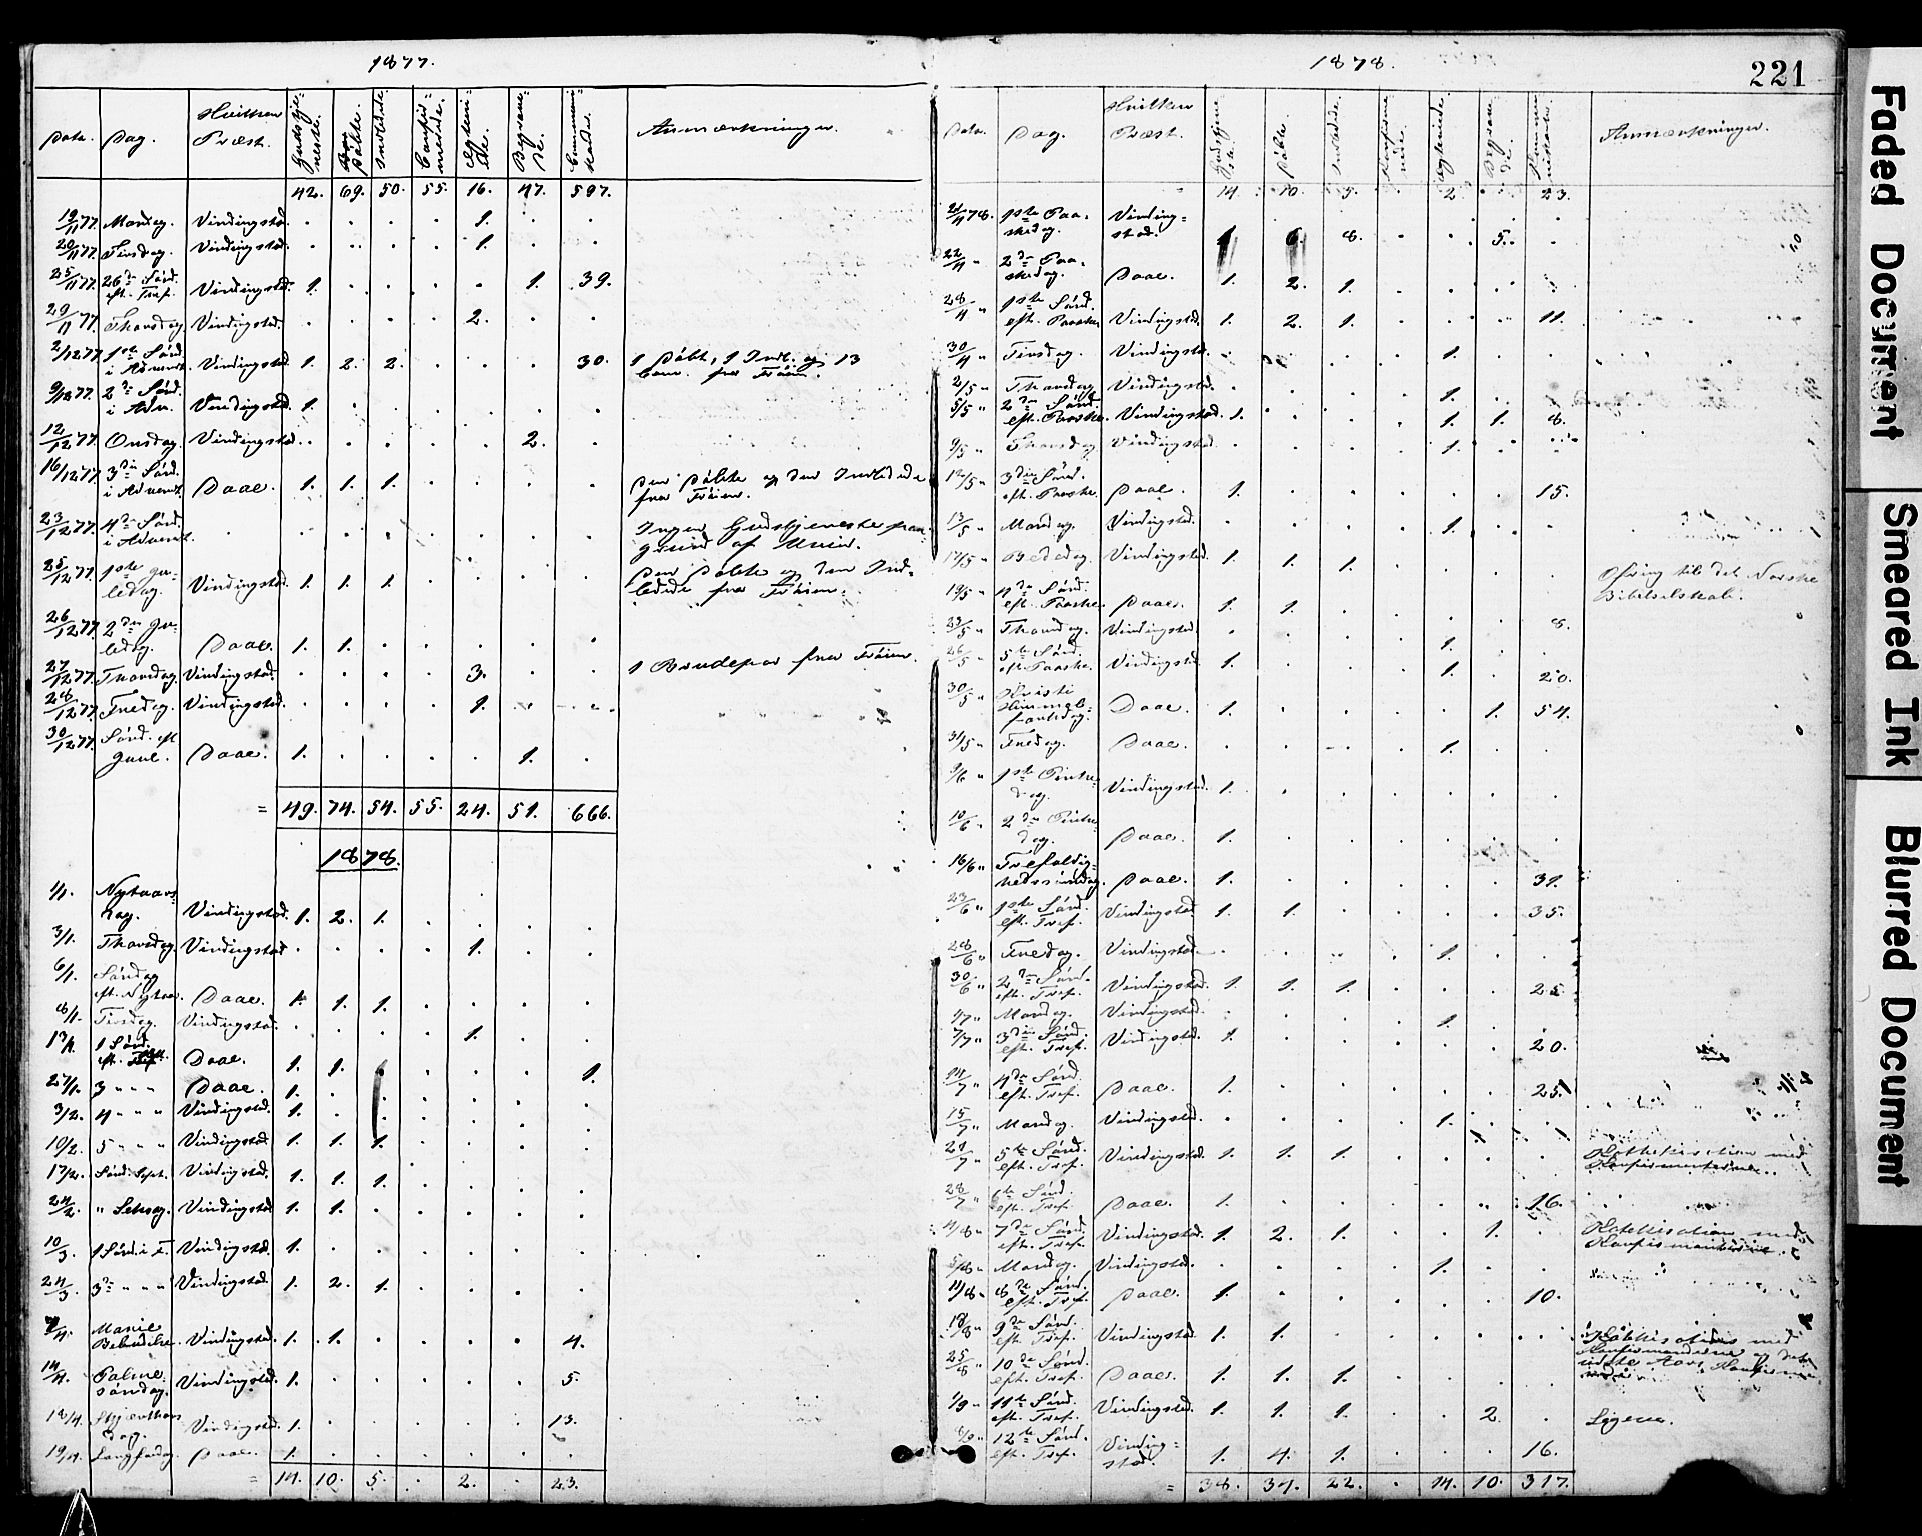 1877.
Dato. Dag. Hvilken Præst. Gudstjeneste. Døbte. Indledede. Confirmerede. Egteviede. Begravede. Communikanter. Anmærkninger.
42. 69. 50. 55. 16. 47. 597.
19/11 77. Mandag. Vindingstad. . . . . 1. . .
20/11 77. Tirsdag. Vindingstad. . . . . 1. . .
25/11 77. 26de Sønd. eft. Tref. Vindingstad. 1. . . . . 1. 39.
29/11 77. Thorsdag Vindingstad. . . . . 2. . .
2/12 77. 1ste Sønd. i Advent. Vindingstad. 1. 2. 2. . . . 30. 1 Døbt, 1 Indl. og 13
Com. fra Frøien.
9/12 77. 2de Sønd. i Adv. Vindingstad. 1. . . . . . .
12/12 77. Onsdag. Vindingstad. . . . . . 2. .
16/12 77. 3die Sønd. i Advent. Daae. 1. 1. 1. . . . . Den Døbte og den Indledede
fra Frøien.
23/12 77. 4de Sønd. i Advent. . . . . . . . Ingen Gudstjeneste paa
grund af Uveir.
25/12 77. 1ste Juledag. Vindingstad. 1. 1. 1. . . . . Den Døbte og den Ind-
ledede fra Frøien.
26/12 77. 2den Juledag. Daae. 1. 1. . . . . .
27/12 77. Thorsdag. Vindingstad. . . . . 3. . . 1 Brudepar fra Frøien.
28/12 77. Fredag. Vindingstad. . . . . 1. . .
30/12 77. Sønd. eft Juul. Daae. 1. . . . . 1. .
= 49. 74. 54. 55. 24. 51. 666.
1878.
1/1. Nytaarsdag. Vindingstad. 1. 2. 1. . . . .
3/1. Thorsdag. Vindingstad. . . . . 1. . .
6/1. Søndag eft. Nytaar. Daae. 1. 1. 1. . . . .
8/1. Tirsdag. Vindingstad. . . . . 1. . .
13/1. 1 Sønd. eft. Daae. 1. 1. . . . . 1.
27/1. 3 " " " Daae. 1. . . . . . .
3/2. 4 " " " Vindingstad. 1. . . . . .
10/2. 5 " " " Vindingstad. 1. 1. 1. . . . .
17/2. Sønd. Sept. Vindingstad. 1. 1. 1. . . . .
24/2. " Seksag. Vindingstad. 1. 1. . . . . .
10/3. 1 Sønd. i F. Vindingstad. 1. . . . . . .
24/3. 3de " " " Vindingstad. 1. 2. 1. . . . .
7/4. Mariæ Bebudelse. Vindingstad. 1. 1. . . . . 4.
14/4. Palmesøndag. Vindingstad. 1. . . . . . 5.
18/4. Skjærthorsdag. Vindingstad. 1. . . . . . 13.
19/4. Langfredag. Daae. 1. . . . . . .
= 14. 10. 5. . 2. . 23.
1878.
221
Dato. Dag. Hvilken Præst. Gudstjeneste. Døbte. Indledede. Konfirmerede. Egteviede. Begravede. Kommunikanter. Anmærkninger.
" 14. 10. 5. . 2. . 23.
21/4 78. 1ste Paaskedag. Vindingstad. 1 6. 8. . . 5. .
22/4 " 2de Paaskedag. Daae. 1. 2. 1. . . . .
28/4 " 1ste Sønd. eft. Paaske. Vindingstad. 1. 2. 1. . . . 11.
30/4 " Tirsdag. Vindingstad. . . . . 1. . .
2/5 " Thorsdag Vindingstad. . . . . 1. . .
5/5 " 2den Sønd. eft. Paaske. Vindingstad. 1. . . . 1. 1. 8.
9/5 " Thorsdag Vindingstad. . . . . 1. . .
12/5 " 3die Sønd. eft. Paaske. Daae. 1. . . . . . 15.
13/5 " Mandag. Vindingstad. . . . . 1. . .
17/5 " Bededag. Vindingstad. 1. 1. 1. . . . . Ofring til det Norske
Bibelselskab.
19/5 " 4de Sønd. eft. Paaske. Daae. 1. 1. . . . . 8.
23/5 " Thorsdag. Vindingstad. . . . . 1. . .
26/5 " 5te Sønd. eft. Paaske. Vindingstad. 1. . . . 1. . 20.
30/5 " Kristi Himmelfartsdag. Daae. 1. . . . . 1. 54.
31/5 " Fredag. Daae. . . . . 1. . .
9/6 " 1ste Pintsedag. Vindingstad. 1. . . . . . .
10/6 " 2den Pintsedag. Daae. 1. . . . . . .
16/6 " Trefoldighedssøndag. Daae. 1. . . . . . 31.
23/6 " 1ste Sønd. eft. Tref. Vindingstad. 1. 1. . . . . 35.
28/6 " Fredag. Vindingstad. . . . . 1. . .
30/6 " 2de Sønd. eft. Tref. Vindingstad. 1. 1. 1. . . . 25.
1/7 " Mandag. Vindingstad. . . . . 1. . .
7/7 " 3die Sønd. eft. Tref. Vindingstad. 1. . . . . . 20.
14/7 " 4de Sønd. eft. Tref. Daae. 1. . . . . . 25.
15/7 " Mandag. Vindingstad. . . . . 1. . .
21/7 " 5te Sønd. eft. Tref. Vindingstad. 1. 1. 1. . . . . Kathekisation med
Konfirmanterne.
28/7 " 6te Sønd. eft. Tref. Daae. 1. . . . . . 16.
4/8 " 7de Sønd. eft. Tref. Vindingstad. 1. 2. 1. . . 1. . Katekisation med
Konfirmanterne.
5/8 " Mandag. Vindingstad. . . . . 1. . .
11/8 " 8de Sønd. eft. Tref. Daae. 1. . . . . . 10.
18/8 " 9de Sønd. eft. Tref. Vindingstad. 1. 1. . . . . . med
Konfirmanderne og det
sidste Aars
25/8 " 10de Sønd. eft. Tref. Daae. 1. 1. 1. . . . .
1/9 " 11te Sønd. eft. Tref. Vindingstad. 1. 1. 1. . . 2. . Ligesaa.
8/9 " 12te Sønd. eft. Tref. Vindingstad. 1. 4. 1. . . . 16.
= 38. 34. 22. . 14. 10. 317.
Faded Document
Smeared Ink
Blurred Document